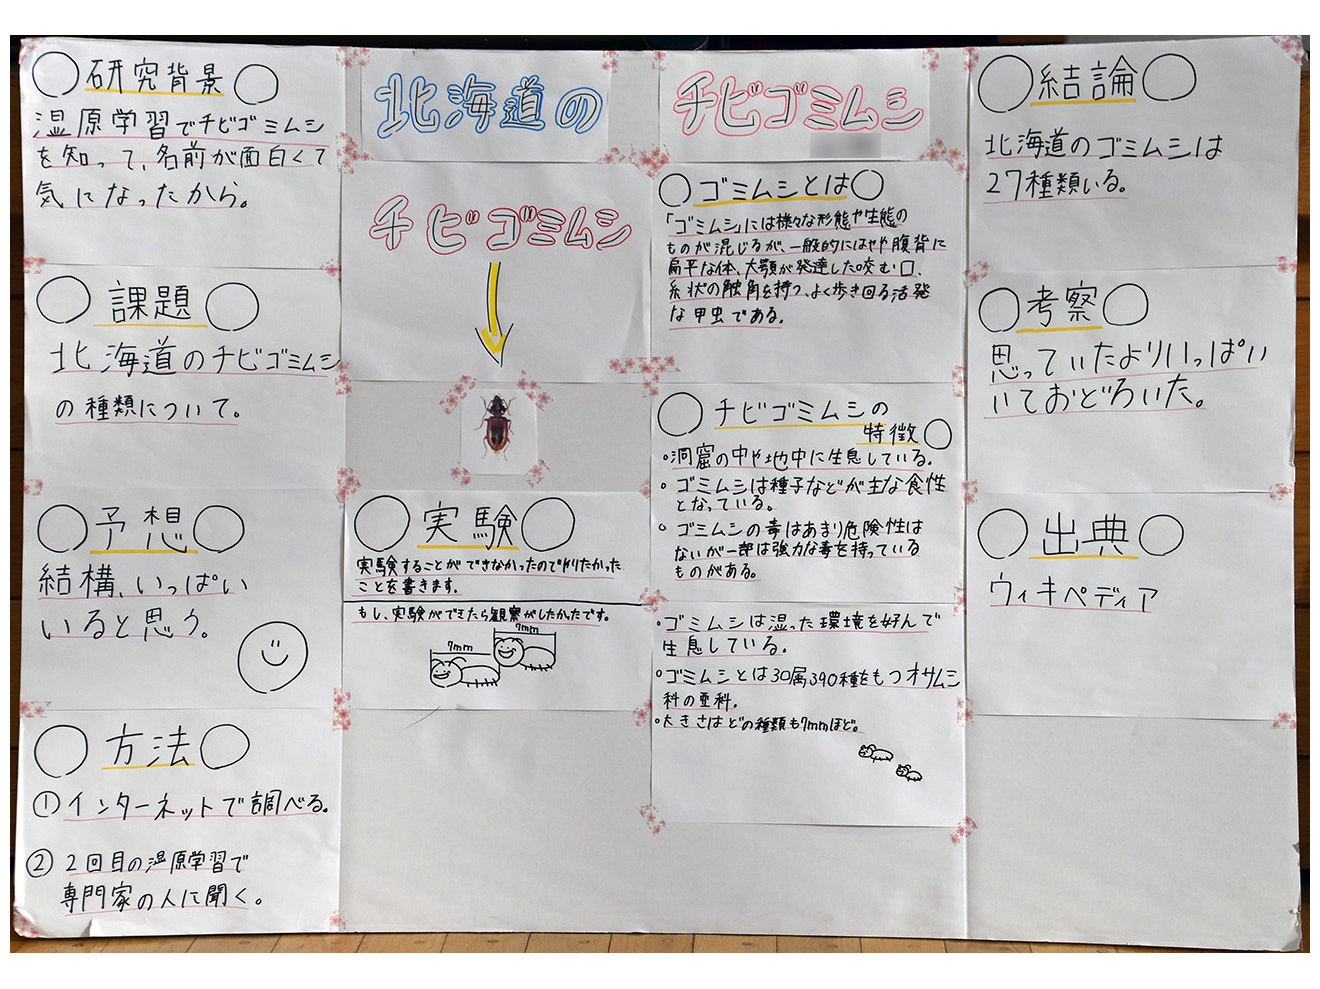 ○研究背景○
湿原学習でチビゴミムシ
を知って、名前が面白くて
気になったから。
○課題○
北海道のチビゴミムシ
の種類について。
○予想○
結構、いっぱい
いると思う。
○方法○
①インターネットで調べる。
②2回目の湿原学習で
専門家の人に聞く。
北海道の
チビゴミムシ
チビゴミムシ
○実験○
実験することができなかったのでやりたかった
ことを書きます。
もし、実験ができたら観察がしたかったです。
7mm
7mm
○ゴミムシとは○
「ゴミムシ」には様々な形態や生態の
ものが混じるが、一般的にはやや腹背に
扁平な体、大顎が発達した咬む口、
糸状の触角を持つ、よく歩き回る活発
な甲虫である。
○チビゴミムシの
特徴○
・洞窟の中や地中に生息している。
・ゴミムシは種子などが主な食性
となっている。
・ゴミムシの毒はあまり危険性は
ないが一部は強力な毒を持っている
ものがある。
・ゴミムシは湿った環境を好んで
生息している。
・ゴミムシとは30属390種をもつオサムシ
科の亜科。
・大きさはどの種類も7mmほど。
○結論○
北海道のゴミムシは
27種類いる。
○考察○
思っていたよりいっぱい
いておどろいた。
○出典○
ウィキペディア